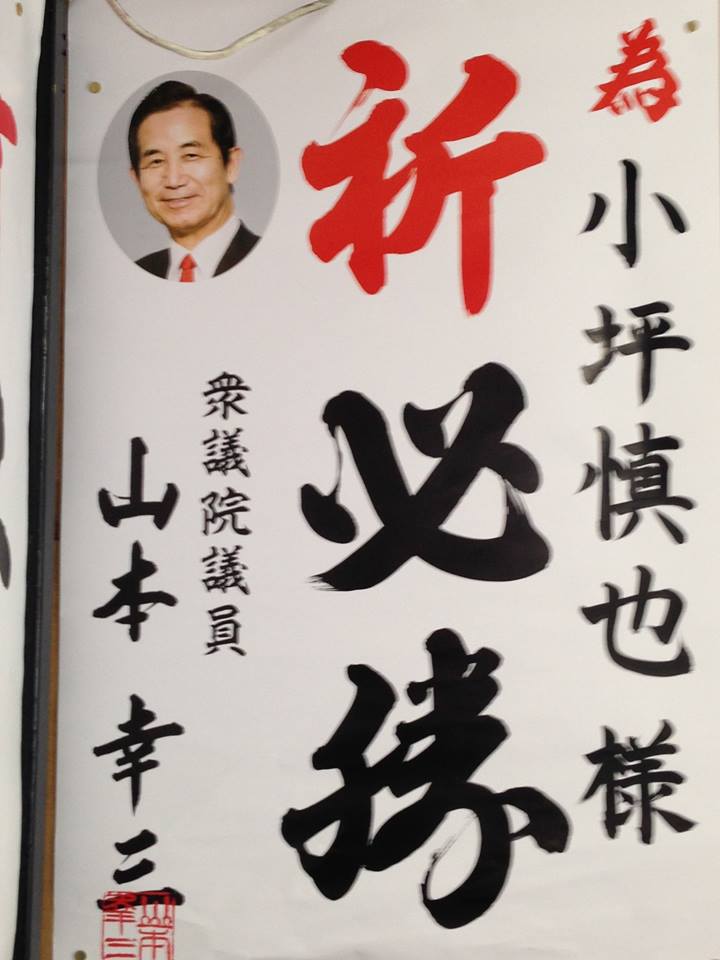 為 小坪慎也 様
祈 必勝
衆議院議員
山本 幸三
山本
幸三